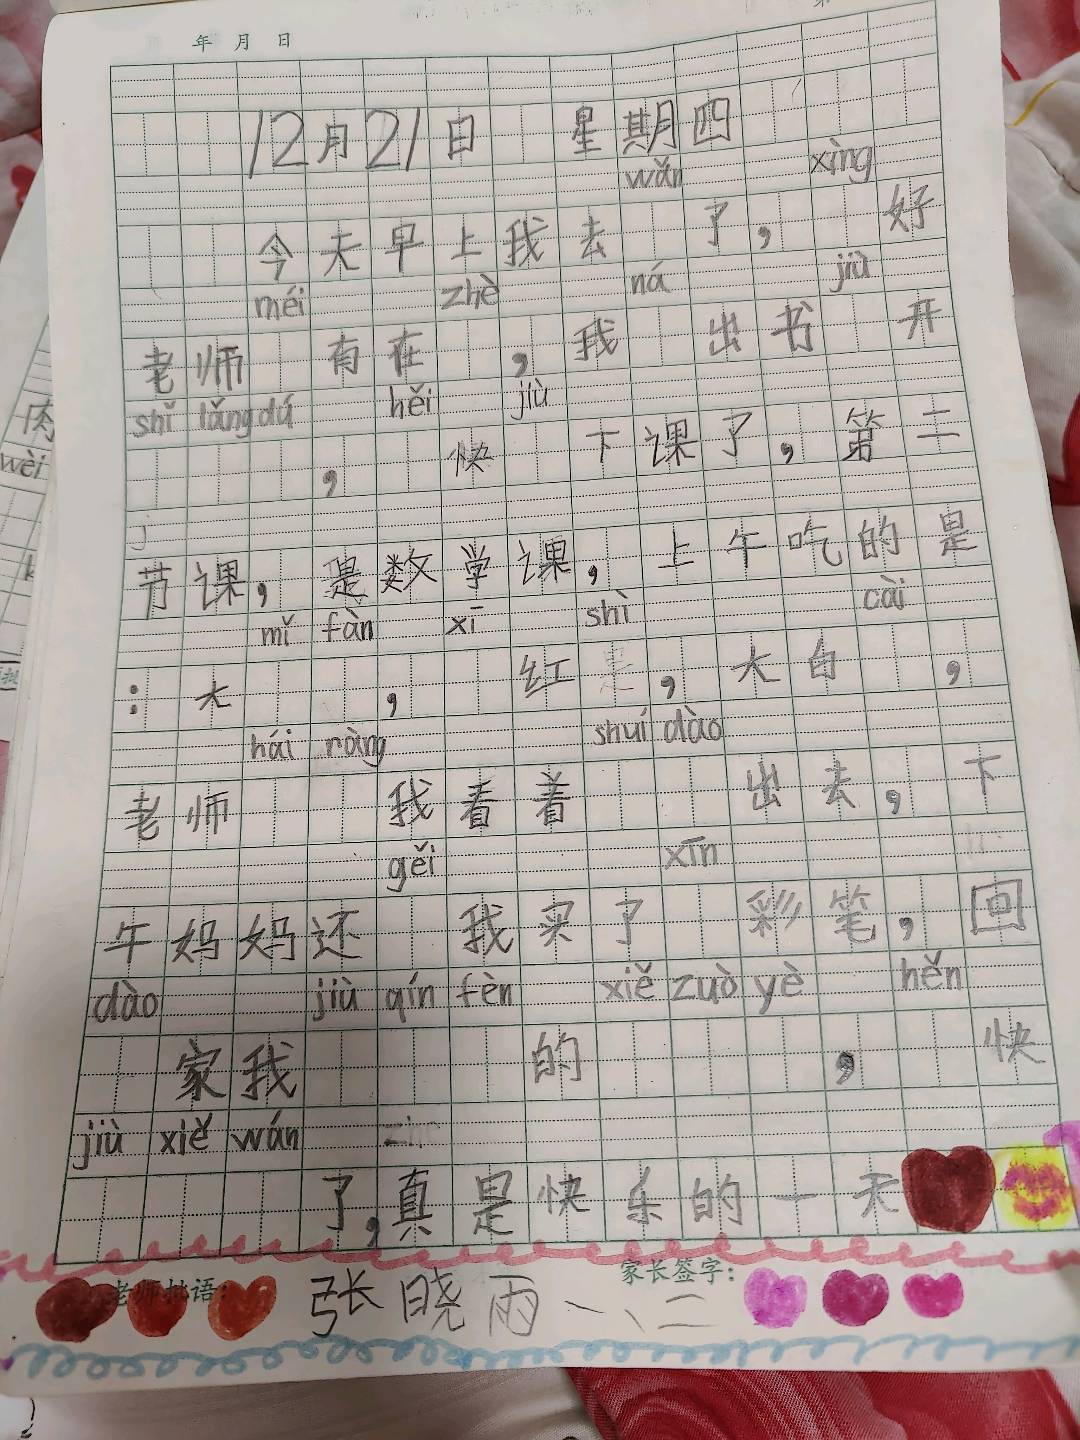 年 月 日
12月21日 星期四
wǎn xìng
今天早上我去 了， 好
méi zhè ná jiù
老师 有在 ，我 出书 开
shǐ lǎng dú hěi jiù
， 快 下课了，第二
j
节课，是数学课，上午吃的是
mǐ fàn xī shì cài
：大 ， 红 ，大白 ，
hái ràng shuí dào
老师 我看着 出去，下
gěi xīn
午妈妈还 我买了 彩笔，回
dào jiù qín fèn xiě zuò yè hěn
家我 的 ， 快
jiù xiě wán
了，真是快乐的一天
老师批语： 家长签字：
张晓雨 一、二
肉
wèi